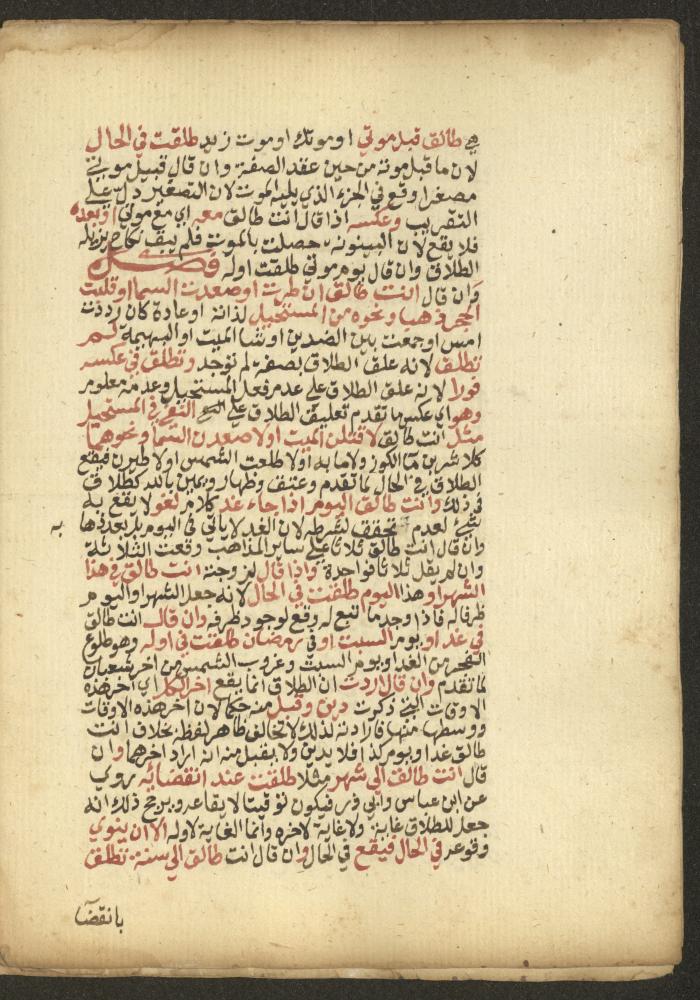 هي طالق قبل موتي او موتك او موت زيد طلقت في الحال
لان ما قبل موته من حين عقد الصفة وان قال قبيل موتي
مصغرا وقع في الجزء الذي يليه الموت لان التصغير دل على
التقريب وعكسه اذا قال انت طالق معه اي مع موتي او بعده
فلا يقع لان البينونة حصلت بالموت فلم يبق نكاح يزيله
الطلاق وان قال يوم موتي طلقت اوله فصل
وان قال انت طالق ان طرت او صعدت السما او قلبت
الحجر ذهبا ونحوه من المستحيل لذاته او عادة كان رددت
امس او جمعت بين الضدين او شا الميت او البهيمة لم
تطلق لانه علق الطلاق بصفة لم توجد وتطلق في عكسه
فورا لانه علق الطلاق على عدم فعل المستحيل وعدمه معلوم
وهو اي عكس ما تقدم تعليق الطلاق على النفي في المستحيل
مثل انت طالق لاقتلن الميت او لاصعدن السما ونحوهما
كلا شربن ما الكوز ولا ما به اولا طلعت الشمس اولا طيرن فيقع
الطلاق في الحال لما تقدم وعتق وظهار ويمين بالله كطلاق
في ذلك وانت طالق اليوم اذا جاء غد كلام لغو لا يقع به
شيء لعدم تحقق شرطه لان الغد لا ياتي في اليوم بل بعد ذهابه
وان قال انت طالق ثلاثا على ساير المذاهب وقعت الثلاثة
وان لم يقل ثلاثا فواحدة واذا قال لزوجته انت طالق في هذا
الشهر او هذا اليوم طلقت في الحال لانه جعل الشهر او اليوم
ظرفا له فاذا وجد ما اتبع له وقع لوجود ظرفه وان قال انت طالق
في غد او يوم السبت او في رمضان طلقت في اوله وهو طلوع
الفجر من الغد او يوم السبت وغروب الشمس من اخر شعبان
لما تقدم وان قال اردت ان الطلاق انما يقع اخر الكل اي اخر هذه
الاوقات التي ذكرت دين وقبل منه حكما لان اخر هذه الاوقات
ووسطها منها فارادته لذلك لا تخالف ظاهر لفظه بخلاف انت
طالق غدا او يوم كذا فلا يدين ولا يقبل منه انه اراد اخرهما وان
قال انت طالق الى شهر مثلا طلقت عند انقضائه روي
عن ابن عباس وابي ذر فيكون توقيتا لايقاعه ويرجح ذلك انه
جعل للطلاق غاية ولا غاية لاخره وانما الغاية لاوله الا ان ينوي
وقوعه في الحال فيقع في الحال وان قال انت طالق الى سنة تطلق
بانقضا